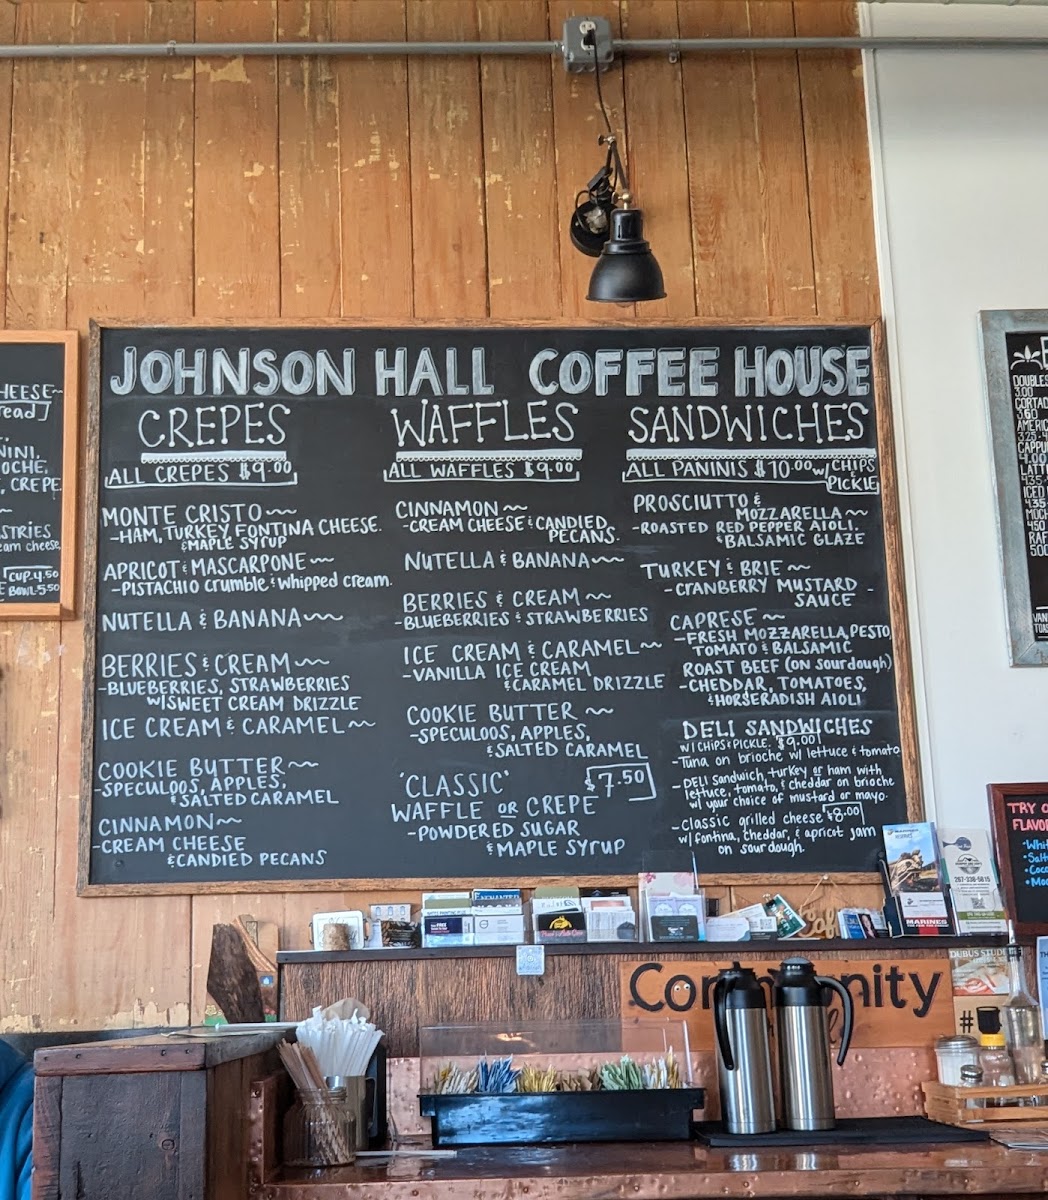 JOHNSON HALL COFFEE HOUSE
CREPES
ALL CREPES $9.00
MONTE CRISTO
-HAM, TURKEY FONTINA CHEESE.
& MAPLE SYRUP
APRICOT & MASCARPONE
-PISTACHIO crumble & whipped cream.
NUTELLA & BANANA
BERRIES & CREAM
-BLUEBERRIES, STRAWBERRIES
w/SWEET CREAM DRIZZLE
ICE CREAM & CARAMEL
COOKIE BUTTER
-SPECULOOS, APPLES,
& SALTED CARAMEL
CINNAMON
-CREAM CHEESE
& CANDIED PECANS
WAFFLES
ALL WAFFLES $9.00
CINNAMON
-CREAM CHEESE & CANDIED
PECANS.
NUTELLA & BANANA
BERRIES & CREAM
-BLUEBERRIES & STRAWBERRIES
ICE CREAM & CARAMEL
-VANILLA ICE CREAM
& CARAMEL DRIZZLE
COOKIE BUTTER
-SPECULOOS, APPLES,
& SALTED CARAMEL
'CLASSIC' $7.50
WAFFLE OR CREPE
-POWDERED SUGAR
& MAPLE SYRUP
SANDWICHES
ALL PANINIS $10.00 w/ CHIPS
PICKLE
PROSCIUTTO &
MOZZARELLA
-ROASTED RED PEPPER AIOLI.
& BALSAMIC GLAZE
TURKEY & BRIE
-CRANBERRY MUSTARD -
SAUCE
CAPRESE
-FRESH MOZZARELLA, PESTO,
TOMATO & BALSAMIC
ROAST BEEF (ON Sourdough)
-CHEDDAR, TOMATOES,
& HORSERADISH AIOLI
DELI SANDWICHES
W/ CHIPS & PICKLE. $9.00
-Tuna on brioche w/ lettuce & tomato
-DELI Sandwich, turkey or ham with
lettuce, tomato, & cheddar on brioche
w/ your choice of mustard or mayo.
-Classic grilled cheese $8.00
w/ fontina, cheddar, & apricot jam
on sourdough.
HEESE
read]
NINI,
OCHE,
, CREPE.
STRIES
eam cheese,
CUP 4.50
BOWL 5.50
DOUBLES
3.00
CORTAD
3.60
AMERIC
CAPPU
4.00
LATT
4.35
ICED
4.35
MOCH
4.50
RAF
500
VAN
TOAS
TRY O
FLAVOR
Whit
Salt
Coco
Moc
267-336-5815
MARINES
ENCHANTED
DUBUS STUD
Com nity
#